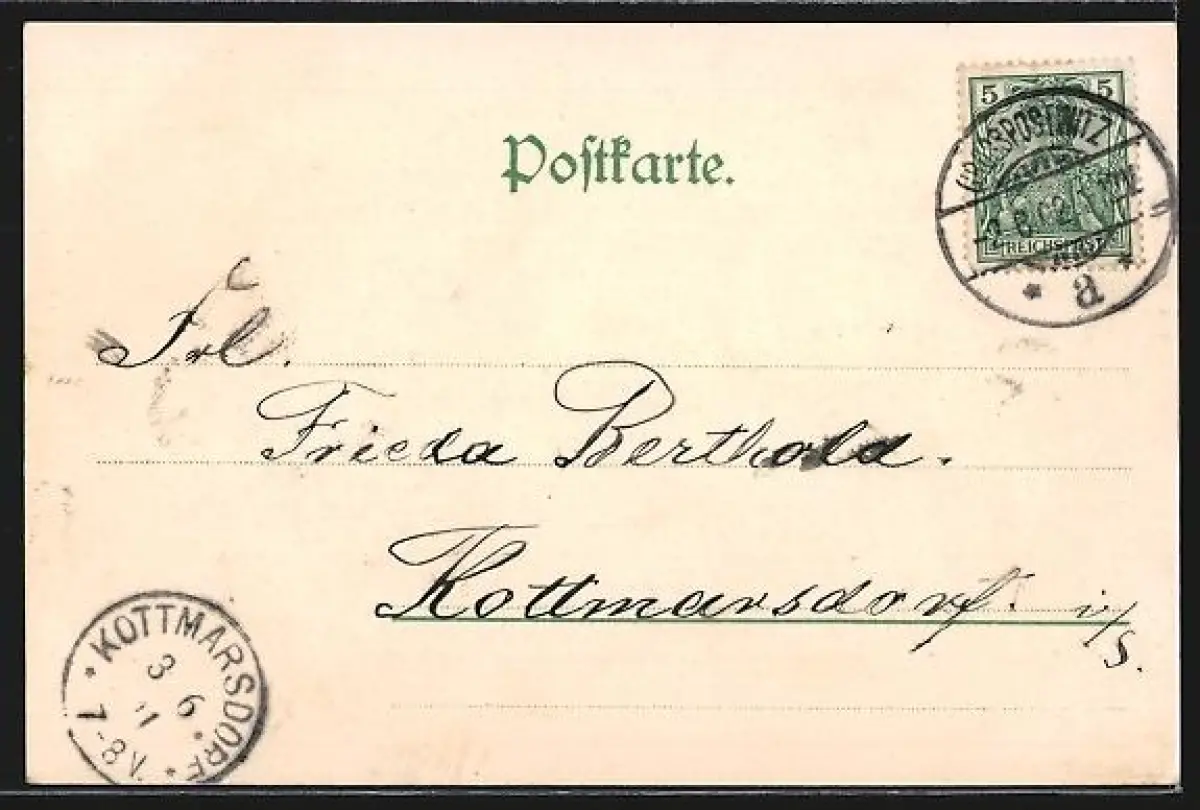 Postkarte.
5 5
REICHSPOST
* a *
Frl.
Frieda Berthold.
Kottmarsdorf. i/S.
* KOTTMARSDORF *
3 6
7-8V.